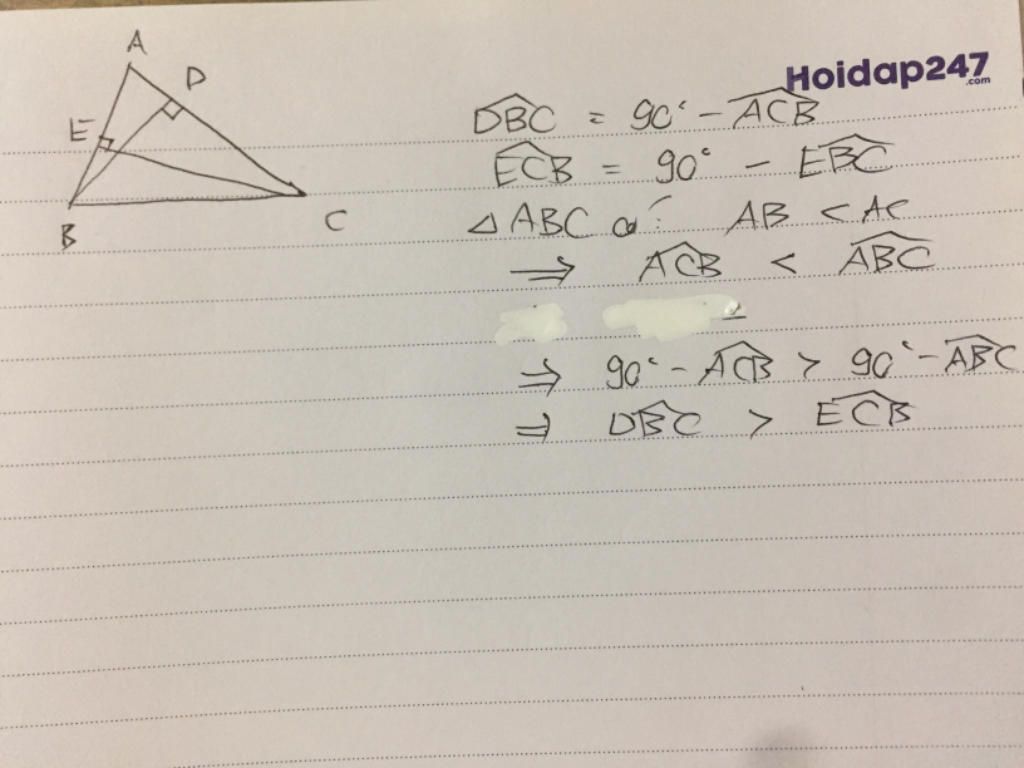 A
D
E
B
C
Hoidap247
.com
DBC = 90° - ACB
ECB = 90° - EBC
△ABC có: AB < AC
⇒ ACB < ABC
⇒ 90° - ACB > 90° - ABC
⇒ DBC > ECB